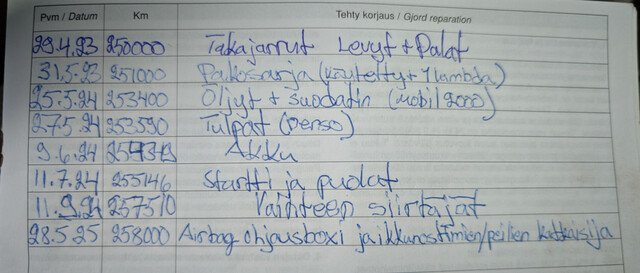 Pvm / Datum Km Tehty korjaus / Gjord reparation
29.4.23 250000 Takajarrut Levyt + Palat
31.5.23 251000 Pakosarja (käytetty + 1 lambda)
25.5.24 253400 Öljyt + suodatin (mobil 2000)
27.5.24 253590 Tulpat (Denso)
9.6.24 Akku
11.7.24 255146 Startti ja puolat
11.9.24 257510 Vaihteen siirtäjät
28.5.25 258000 Airbag ohjausboxi ja ikkunostimien/peilien katkaisija